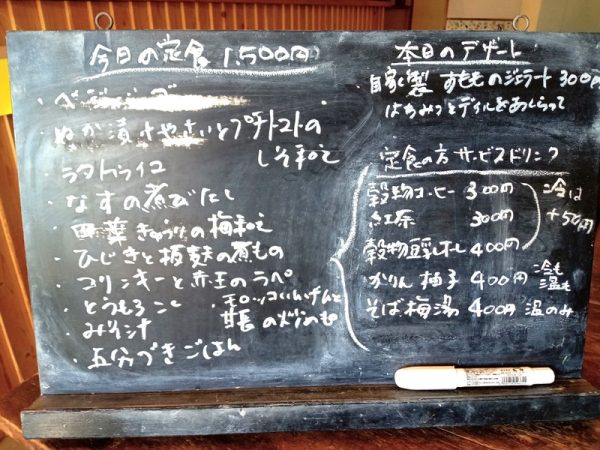 今日の定食 1.500円
・ベジ
・ぬか漬けやさいとプチトマトの
しそ和え
・ラタトゥイユ
・なすの煮びたし
・きゅうりの梅和え
・ひじきと板麩の煮もの
・コリンキーと赤玉のラペ
・とうもろこし
・モロッコいんげんと
甘長の炒めもの
・みそ汁
・五分づきごはん
本日のデザート
自家製 すもものジェラート 300円
はちみつとディルをあしらって
定食の方 サービスドリンク
穀物コーヒー 300円
紅茶 300円
穀物豆乳オレ 400円
冷は
+50円
かりん 柚子 400円 冷も
温も
そば梅湯 400円 温のみ